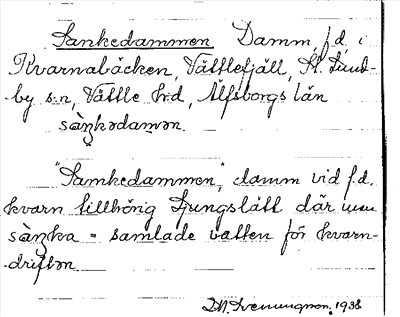 Sankedammen Damm, f.d. i
Kvarnabäcken, Vättlefjäll, St. Lund-
by s:n, Vättle h:d, Älfsborgs län
sàŋkədamən.
"Samkedammen," damm vid f.d.
kvarn tillhörig Ljungslätt där man
sàŋka = samlade vatten för kvarn-
driften
1938